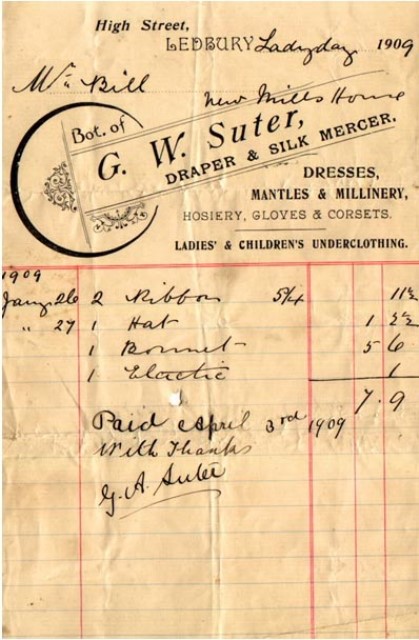 High Street,
LEDBURY Ladyday 1909
Mr Bill
New Mills House
Bot. of
G. W. Suter,
DRAPER & SILK MERCER.
DRESSES,
MANTLES & MILLINERY,
HOSIERY, GLOVES & CORSETS.
LADIES' & CHILDREN'S UNDERCLOTHING.
1909
Jany 26 2 Ribbon 5¾ 11½
" 27 1 Hat 1 2½
1 Bonnet 5 6
1 Elastic 1
7.9
Paid April 3rd 1909
With Thanks
G. A. Suter